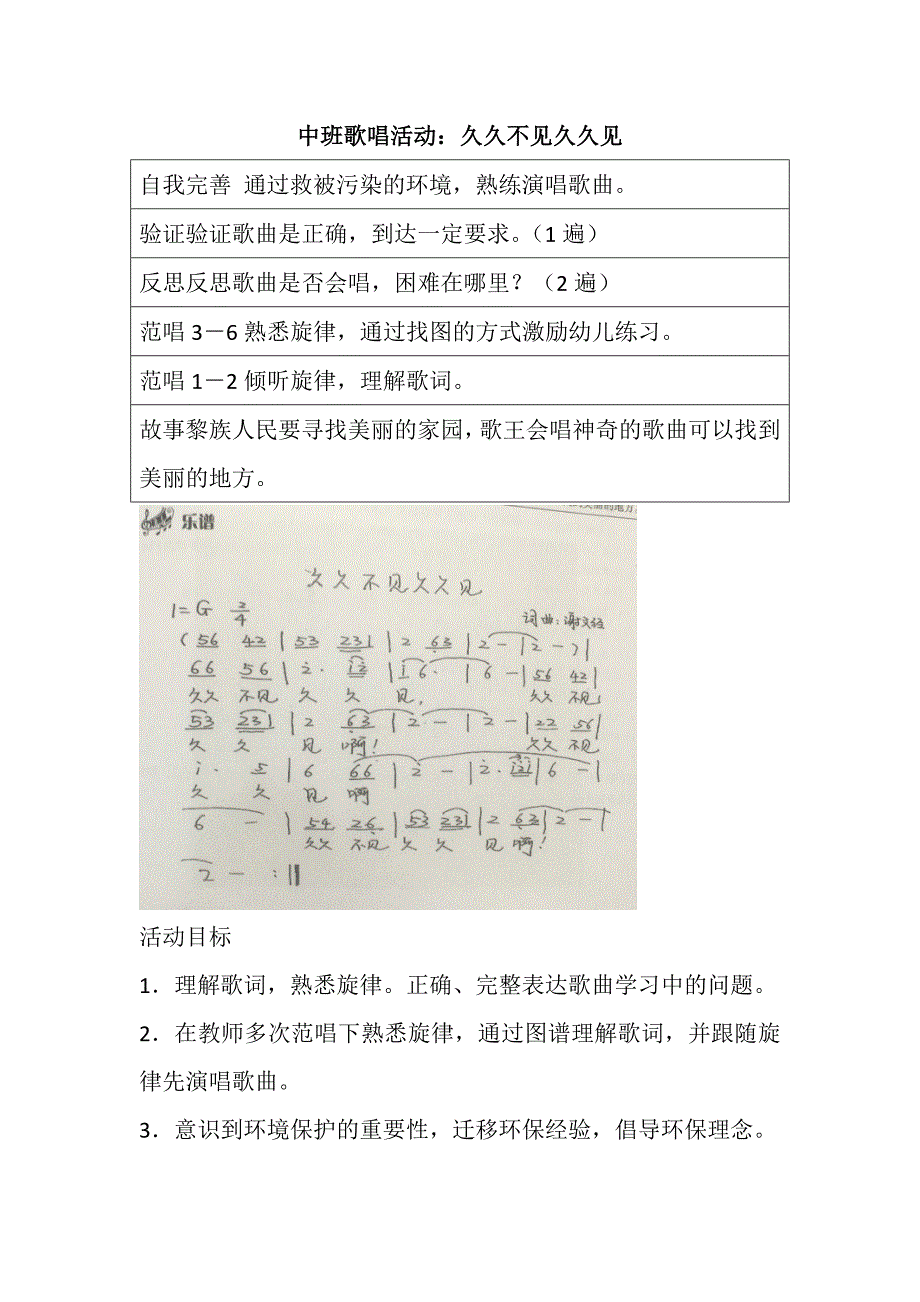 中班歌唱活动：久久不见久久见
自我完善 通过救被污染的环境，熟练演唱歌曲。
验证验证歌曲是正确，到达一定要求。（1 遍）
反思反思歌曲是否会唱，困难在哪里？（2 遍）
范唱 3－6 熟悉旋律，通过找图的方式激励幼儿练习。
范唱 1－2 倾听旋律，理解歌词。
故事黎族人民要寻找美丽的家园，歌王会唱神奇的歌曲可以找到
美丽的地方。
乐谱
久久不见久久见
1=G 2/4
词曲：谢文经
( 56 42 | 53 231 | 2 63 | 2 - | 2 - ) |
66 56 | 2· 12 | 1 6· | 6 - | 56 42 |
久久 不见 久 久 见， 久久 不见
53 231 | 2 63 | 2· - | 2 - | 22 56 |
久 久 见 啊！ 久久 不见
1· 5 | 6 66 | 2 - | 2· 121 | 6 - |
久 久 见 啊
6 - | 54 26 | 53 231 | 2 63 | 2 - |
久久 不见 久 久 见 啊！
2 - :‖
活动目标
1．理解歌词，熟悉旋律。正确、完整表达歌曲学习中的问题。
2．在教师多次范唱下熟悉旋律，通过图谱理解歌词，并跟随旋
律先演唱歌曲。
3．意识到环境保护的重要性，迁移环保经验，倡导环保理念。